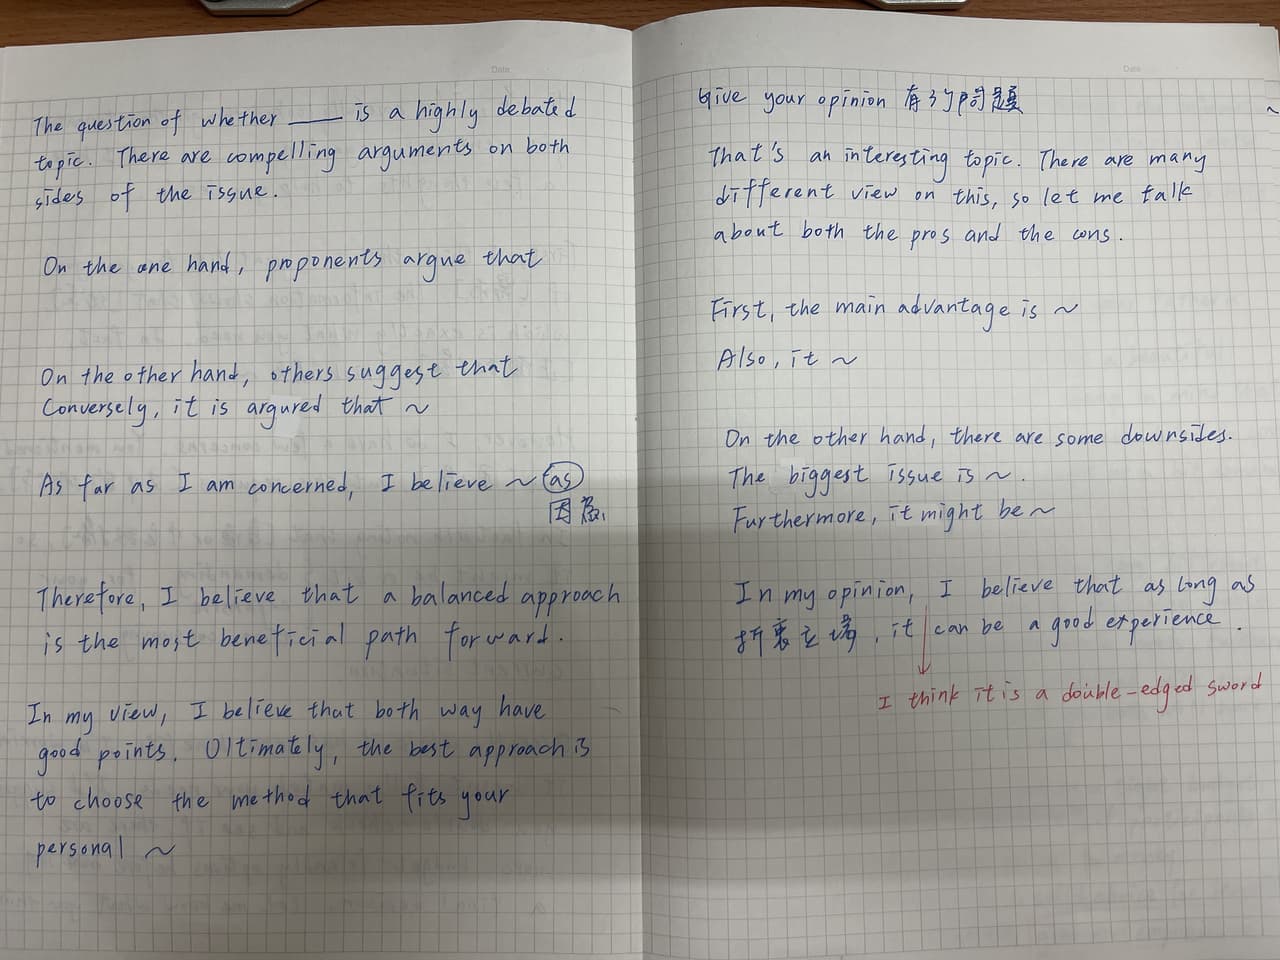 Date
The question of whether ____ is a highly debated
topic. There are compelling arguments on both
sides of the issue.
On the one hand, proponents argue that
On the other hand, others suggest that
Conversely, it is argured that ~
As far as I am concerned, I believe ~ as
因為
Therefore, I believe that a balanced approach
is the most beneficial path forward.
In my view, I believe that both way have
good points. Ultimately, the best approach is
to choose the method that fits your
personal ~
Date
Give your opinion 有的問題
~
That's an interesting topic. There are many
different view on this, so let me talk
about both the pros and the cons.
First, the main advantage is ~
Also, it ~
On the other hand, there are some downsides.
The biggest issue is ~.
Furthermore, it might be ~
In my opinion, I believe that as long as
折衷立場, it can be a good experience.
I think it is a double-edged sword